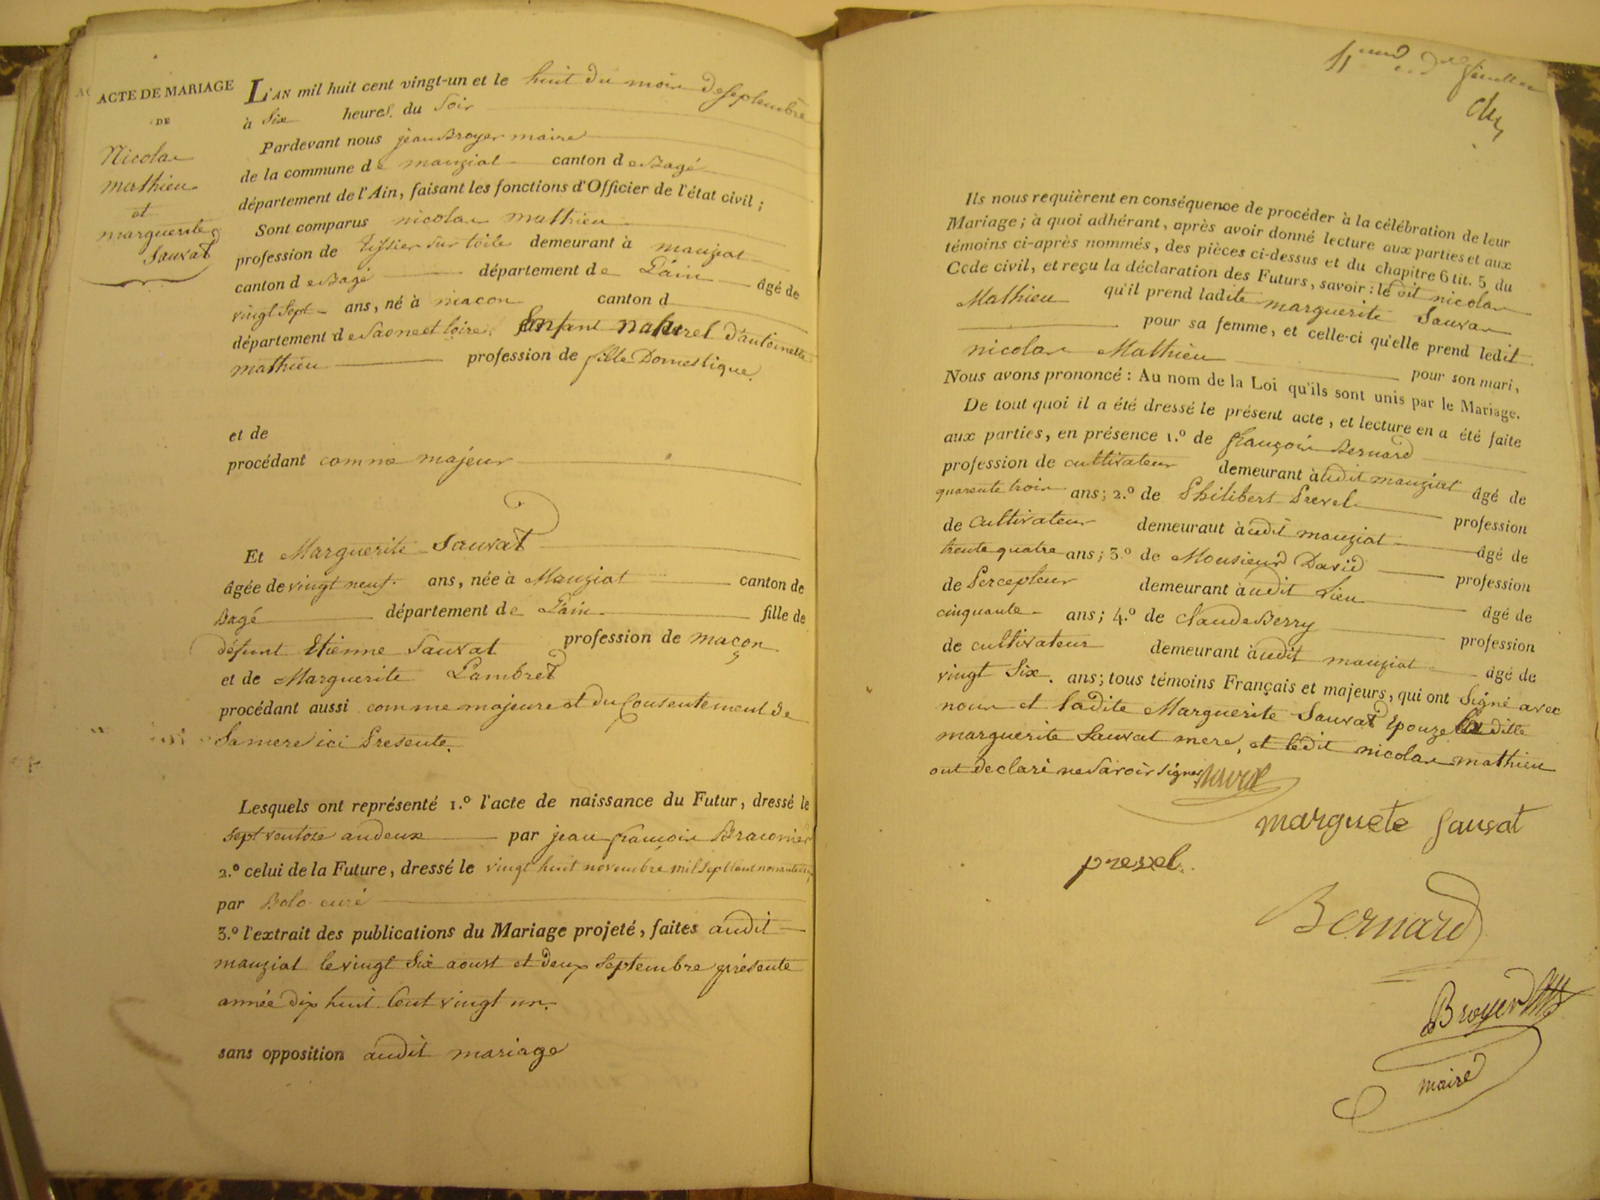 ACTE DE MARIAGE
DE
Nicolas
mathieu
et
marguerite
Sauvat
L'AN mil huit cent vingt-un et le huit du mois de septembre
à Six heures du Soir
Pardevant nous jean Broyer maire
de la commune de manziat canton de Bagé
département de l'Ain, faisant les fonctions d'Officier de l'état civil;
Sont comparus nicolas mathieu
profession de tissier sur toile demeurant à manziat
canton de Bagé département de L'ain âgé de
vingt Sept ans, né à macon canton d
département de Saone et loire, Enfant naturel d'antoinette
mathieu profession de fille Domestique.
et de
procédant comme majeur
Et Marguerite Sauvat
âgée de vingt neuf ans, née à Manziat canton de
Bagé département de L'ain fille de
défunt Etienne Sauvat profession de maçon
et de Marguerite Lambret
procédant aussi comme majeure et du Consentement de
Sa mere ici Presente.
Lesquels ont représenté 1.º l'acte de naissance du Futur, dressé le
sept ventose an deux par jean françois Braconier
2.º celui de la Future, dressé le vingt huit novembre mil Sept Cent
par Bolo curé
3.º l'extrait des publications du Mariage projeté, faites audit
manziat le vingt Six aoust et deux septembre présente
année dix huit Cent vingt un.
sans opposition audit mariage
Ils nous requièrent en conséquence de procéder à la célébration de leur
Mariage; à quoi adhérant, après avoir donné lecture aux parties et aux
témoins ci-après nommés, des pièces ci-dessus et du chapitre 6 tit. 5 du
Code civil, et reçu la déclaration des Futurs, savoir: ledit nicolas
Mathieu qu'il prend ladite marguerite Sauvat
pour sa femme, et celle-ci qu'elle prend ledit
nicolas Mathieu pour son mari,
Nous avons prononcé: Au nom de la Loi qu'ils sont unis par le Mariage.
De tout quoi il a été dressé le présent acte, et lecture en a été faite
aux parties, en présence 1.º de françois Bernard
profession de cultivateur demeurant audit manziat âgé de
quarente trois ans; 2.º de Philibert Prevel profession
de Cultivateur demeurant audit manziat âgé de
trente quatre ans; 3.º de Monsieur David profession
de Percepteur demeurant audit Lieu âgé de
cinquante ans; 4.º de Claude Berry profession
de cultivateur demeurant audit manziat âgé de
vingt Six ans; tous témoins Français et majeurs, qui ont Signé avec
nous et ladite Marguerite Sauvat Epouze laditte
marguerite Sauvat mere, et ledit nicolas mathieu
ont declaré ne Savoir signer
marguete sauvat
prevel.
Bernard
Broyer
maire